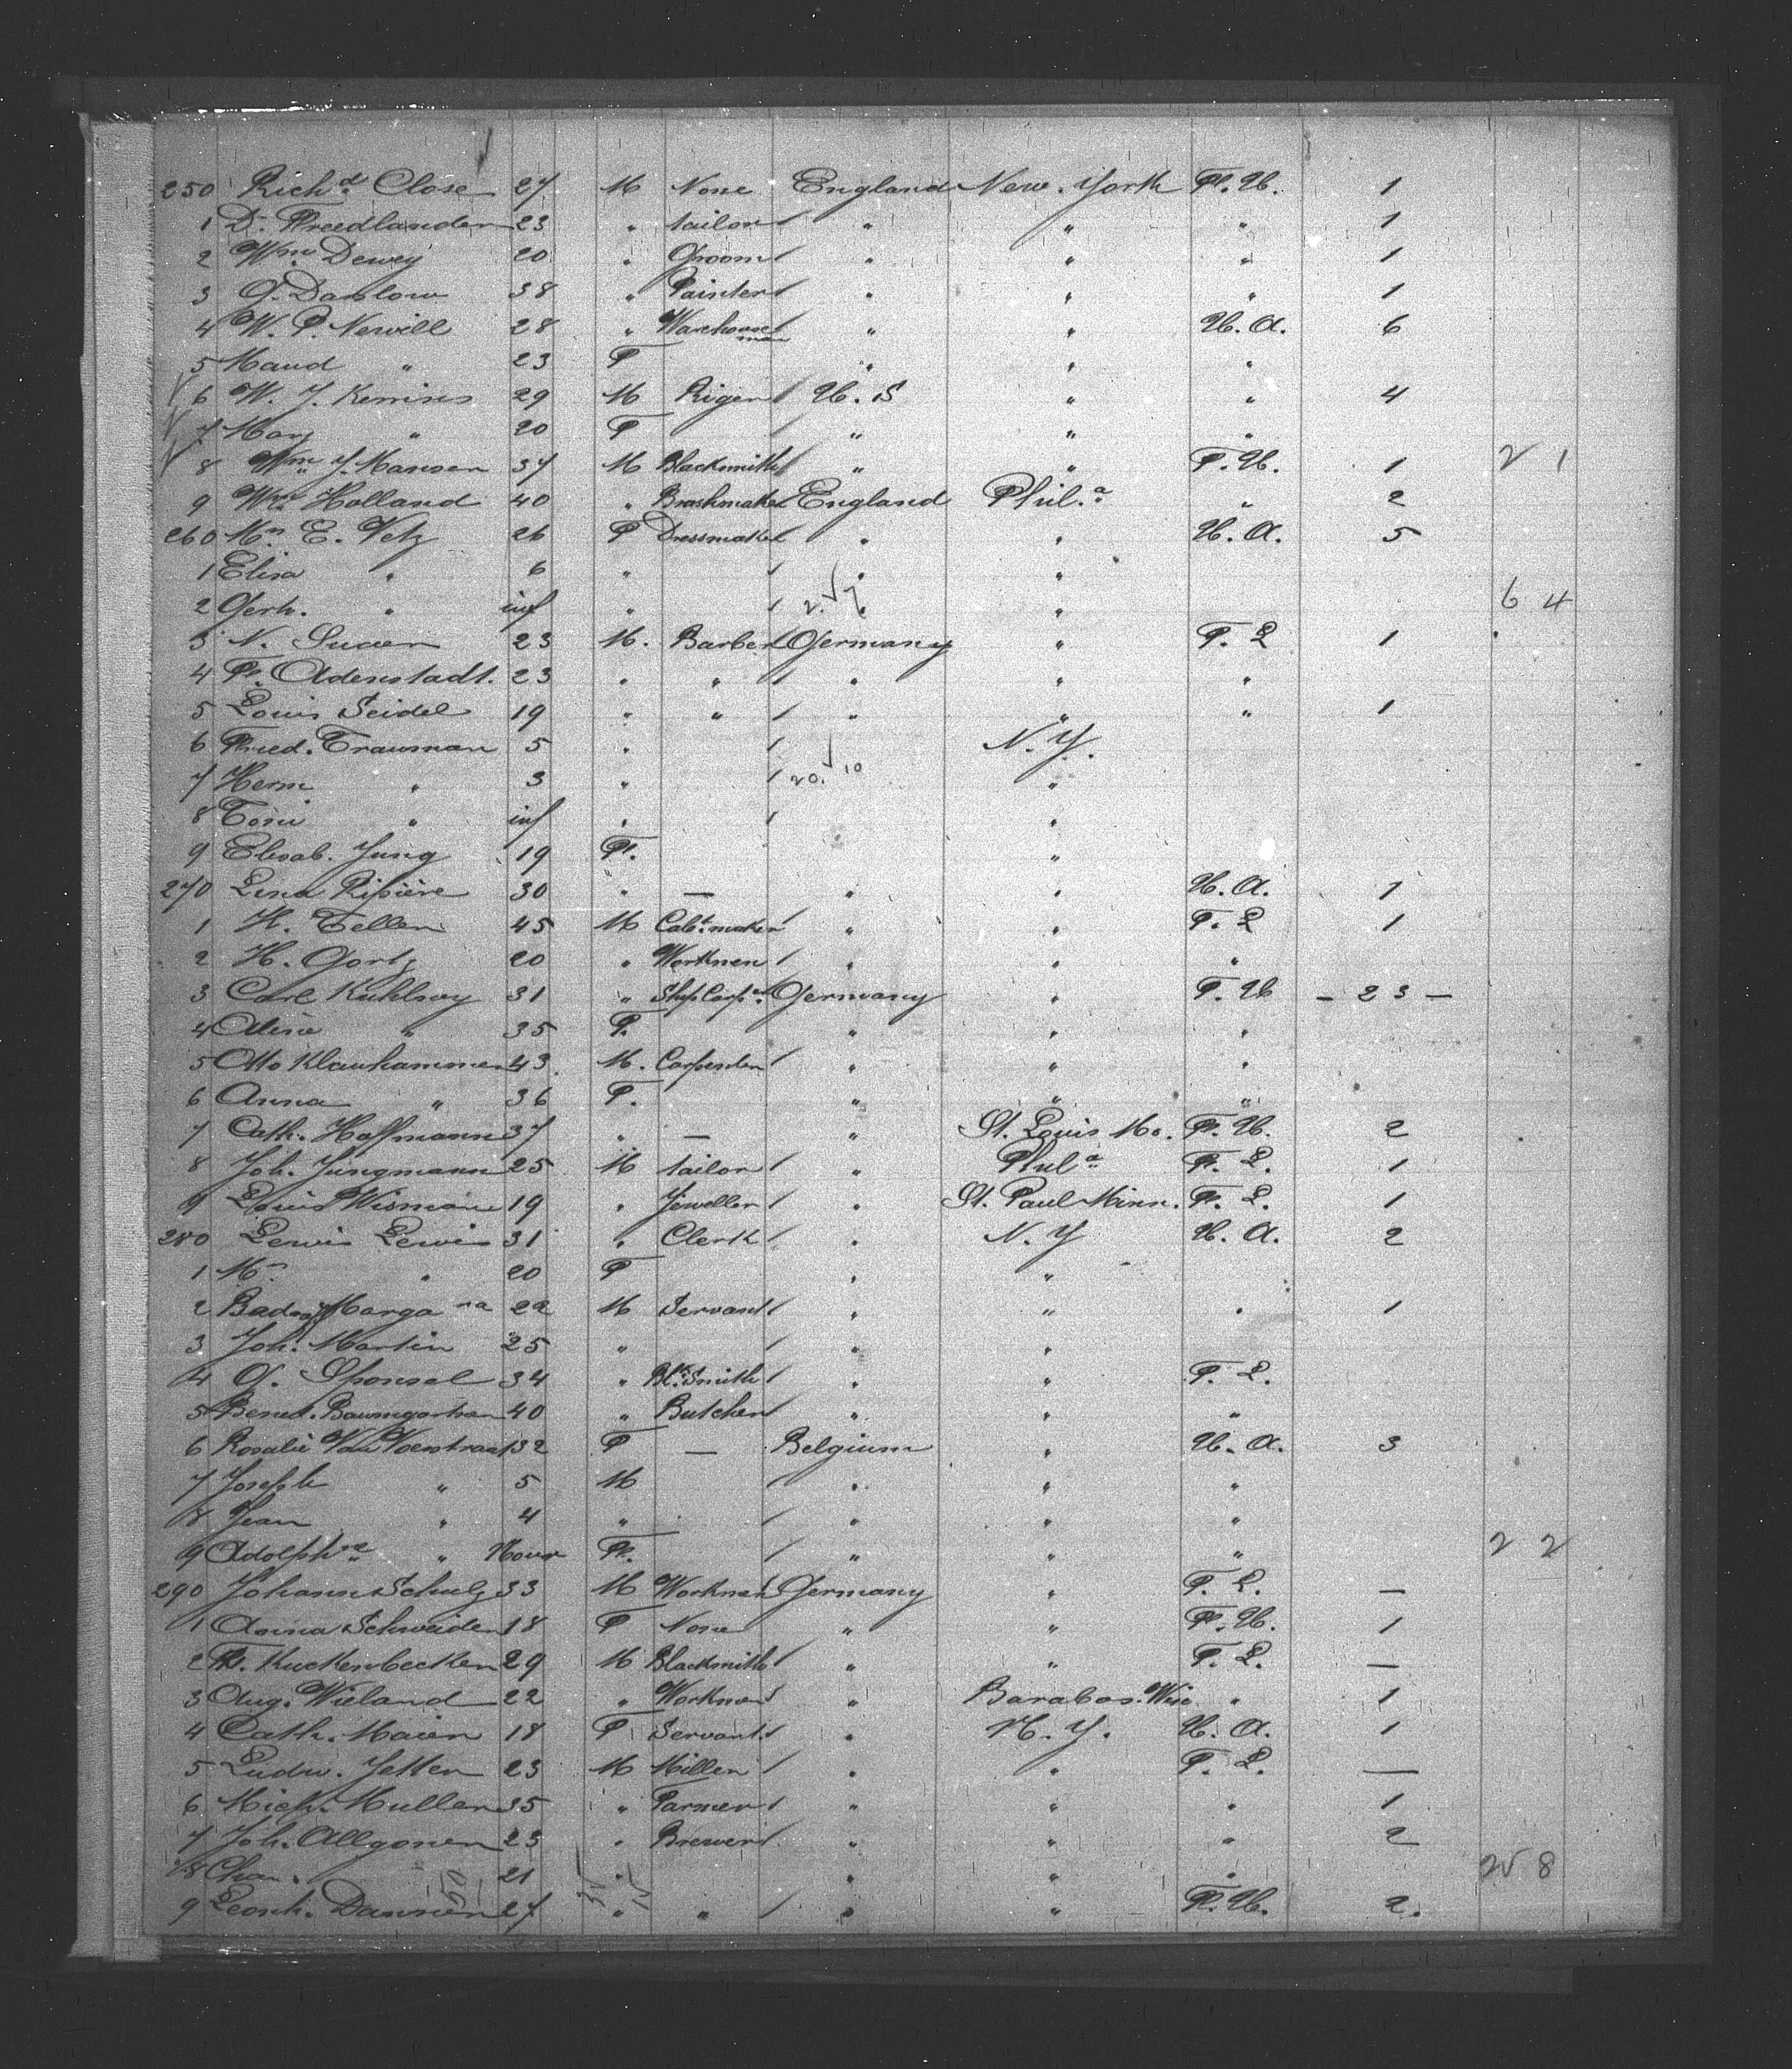 250 Rich.d Close 27 M None England New. York F. U. 1
1 D. Freedlander 23 " tailor " " " 1
2 Wm. Dewey 20 " Groom " " " 1
3 G. Darlow 38 " Painter " " " 1
4 W. P. Newill 28 " Warehouse man " " U. A. 6
5 Maud " 23 F " " "
6 W. J. 29 M Riger U. S " " 4
7 Mary " 20 F " " "
8 Wm. J. Mansen 37 M Blacksmith " " F. U. 1 2 1
9 Wm. Holland 40 " Brushmaker England Phil.a " 2
260 Mrs. E. Vetz 26 F Dressmaker " " U. A. 5
1 Elisa " 6 " " "
2 Gerh. " inf " 2. 7 " " 6 4
3 N. 23 M. Barber Germany " F. L 1
4 F. Adenstadt. 23 " " " " "
5 Louis Seidel 19 " " " " " 1
6 Fried. Trauman 5 " N. Y.
7 Herm " 3 " 20. 10 "
8 Toni " inf " "
9 Elisab. Jung 19 F. "
270 Lina Ripière 30 " — " " U. A. 1
1 K. Teller 45 M Cabt. maker " " F. L 1
2 H. Gortz 20 " Workmen " " "
3 Carl Kuhlsoy 31 " Ship Carpr. Germany " F. U — 23 —
4 Aline " 35 F. " " "
5 Otto Klauhammer 43 M. Carpenter " " "
6 Anna " 36 F. " " "
7 Cath. Hoffmann 37 " — " St. Louis Mo. F. U. 2
8 Joh. Jungmann 25 M tailor " Phil.a F. L. 1
9 Louis Wisman 19 " Jeweller " St. Paul Minn. F. L. 1
280 Lewis Lewis 31 " Clerk " N. Y U. A. 2
1 Mrs " 20 F " "
2 Marga 22 M Servant " " " 1
3 Joh. Martin 25 " " "
4 G. Sponsel 34 " Bl.Smith " " F. L.
5 Bened. Baumgartner 40 " Butcher " " "
6 Rosalie Van Voerstraat 32 F — Belgium " U. A. 3
7 Joseph " 5 M " " "
8 Jean " 4 " " " "
9 Adolphne " F. " " " 2 2
290 Johann Schulz 33 M Workman Germany " F. L. —
1 Anna Schneider 18 F None " " F. U. 1
2 F. Kuckenbecker 29 M Blacksmith " " F. L. —
3 Aug. Wieland 22 " Workman " Baraboo. Wis " 1
4 Cath. Maier 18 F Servant " N. Y. U. A. 1
5 Ludw. Jetter 23 M Miller " " F. L. —
6 Mich. Muller 35 " Farmer " " " 1
7 Joh. Allgoner 23 " Brewer " " " 2
8 Chr. " 21 " " " " 8
9 Leonh. 27 " " " " F. U. 2.